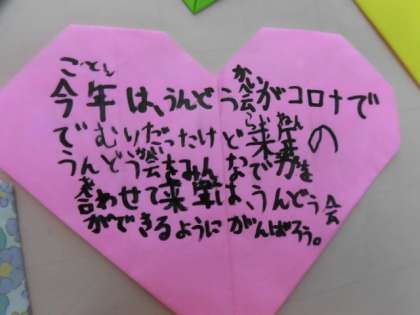 今年は、うんどう会がコロナで
でむりだったけど来年の
うんどう会をみんなで力を
合わせて来年は、うんどう会
ができるようにがんばろう。